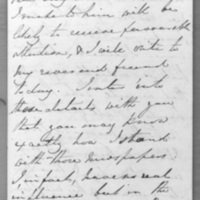 I make to him will be
likely to receive favorable
attention, & I will write to
my reverend friend
to-day. I enter into
these details with you
that you may know
exactly how I stand
with those newspapers.
In short, I have no real
influence but in the